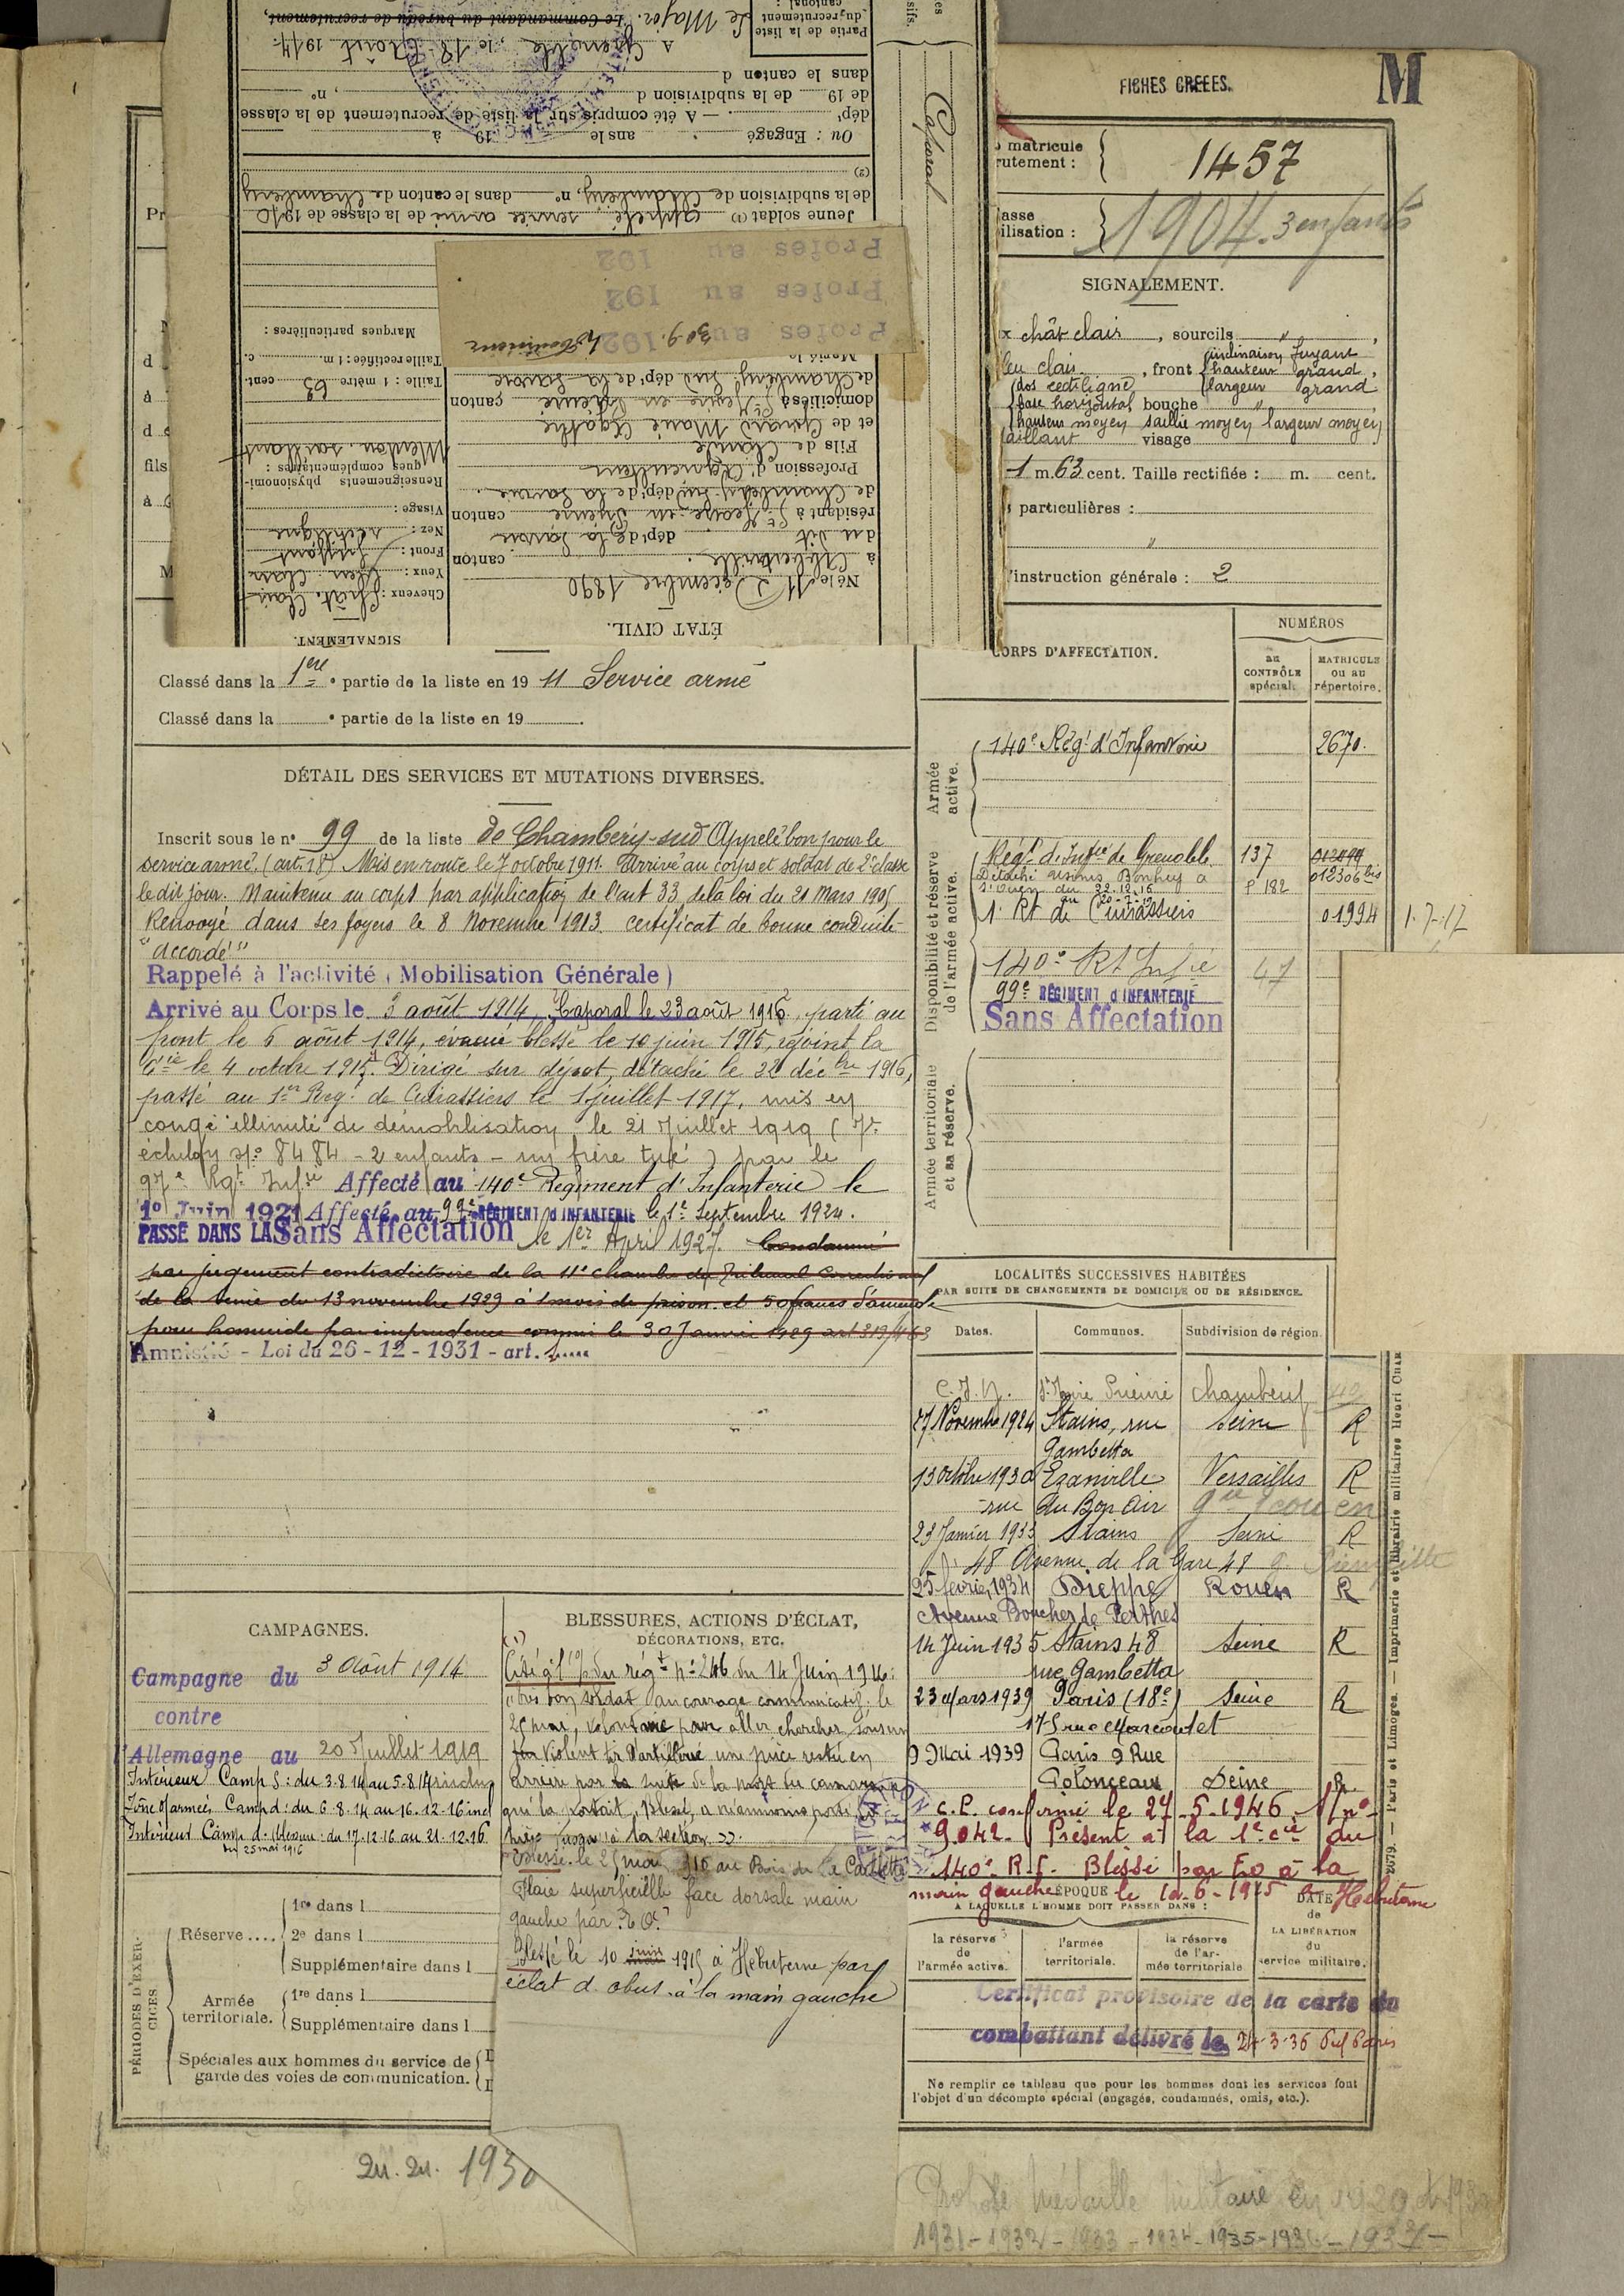 FICHES CREEES.
M
matricule
rutement :
1457
asse
ilisation :
1904. 3 enfants
SIGNALEMENT.
x chât clair , sourcils "
leu clair , front inclinaison fuyant
hauteur grand ,
dos rectiligne largeur grand
base horizontal bouche "
hauteur moyen saillie moyen largeur moyen
visage
1 m. 63 cent. Taille rectifiée : m. cent.
particulières :
"
'instruction générale : 2
Partie de la liste
du recrutement
cantonal :
Le Major.
Le Commandant du bureau de recrutement,
A Grenoble, le 18 Août 1914.
dans le canton d
de 19 de la subdivision d , n°
dépt . — A été compris sur la liste de recrutement de la classe
Ou : Engagé ans le 19 à
(2)
de la subdivision de Chambéry, n° dans le canton de Chambéry
Jeune soldat (1) appelé, service armé de la classe de 1910
Caporal
Profes au 192
Profes au 192
Profes au 192
30-9.
Marques particulières :
Taille rectifiée : 1 m. c.
Taille : 1 mètre 63 cent.
Menton saillant
Renseignements physionomi-
ques complémentaires :
Visage :
Nez : rectiligne
Front : fuyant
Yeux : bleu clair
Cheveux : Chât. Clair
SIGNALEMENT.
de Chambéry Sud dépt de la Savoie
domicilié à St Jeoire en Prieuré canton
et de Girard Marie Agathe
Fils de Claude
Profession d' Agriculteur
de Chambéry Sud, dépt de la Savoie.
résidant à St Jeoire en Prieuré canton
du dit dépt de la Savoie
à Albertville, canton
Né le 11 Décembre 1890
ÉTAT CIVIL.
Classé dans la 1ere partie de la liste en 19 11 Service armé
Classé dans la e partie de la liste en 19 .
DÉTAIL DES SERVICES ET MUTATIONS DIVERSES.
Inscrit sous le n° 99 de la liste de Chambéry-sud Appelé bon pour le
service armé. (art. 18) Mis en route le 7 octobre 1911. Arrivé au corps et soldat de 2e classe
le dit jour. Maintenu au corps par application de l'art 33 de la loi du 21 Mars 1905
Renvoyé dans ses foyers le 8 Novembre 1913. certificat de bonne conduite
"accordé"
Rappelé à l'activité (Mobilisation Générale)
Arrivé au Corps le 3 août 1914, Caporal le 23 août 1916, parti au
front le 6 août 1914, évacué blessé le 10 juin 1915, rejoint la
Cie le 4 octobre 1915. Dirigé sur dépot, détaché le 22 décbre 1916,
passé au 1er Rég. de Cuirassiers le 1 juillet 1917, mis en
congé illimité de démobilisation le 21 Juillet 1919 (7e
échelon no 8484 - 2 enfants - un frère tué) par le
97e Rgt Infie Affecté au 140e Régiment d'Infanterie le
1er Juin 1921 Affecté au 99e RÉGIMENT d'INFANTERIE le 1er Septembre 1924.
PASSÉ DANS LA Sans Affectation le 1er April 1927. Condamné
par jugement contradictoire de la 11e chambre du Tribunal Correctionnel
de la Seine du 13 novembre 1929 à 1 mois de prison et 50 francs d'amende
pour homicide par imprudence commis le 30 Janvier 1929 art 319/463
Amnistié - Loi du 26-12-1931 - art. 1
ORPS D'AFFECTATION.
NUMÉROS
au
CONTRÔLE
spécial.
MATRICULE
ou au
répertoire.
Armée
active.
140e Régt d'Infanterie 2670.
Disponibilité et réserve
de l'armée active.
Régt d'Infie de Grenoble 137
Détaché Usines Bonhey à St Ouen du 22.12.16 P 182 012306 bis
1. Rt de Cuirassiers 01994 1.7.17
140e Rt Infie 47
99e RÉGIMENT d'INFANTERIE
Sans Affectation
Armée territoriale
et sa réserve.
LOCALITÉS SUCCESSIVES HABITÉES
PAR SUITE DE CHANGEMENTS DE DOMICILE OU DE RÉSIDENCE.
Dates. Communes. Subdivision de région.
St Jeoire Prieuré Chambéry
27 Novembre 1924 Stains, rue Seine R
Gambetta
13 Octobre 1930 Ezanville Versailles R
rue du Bon Air
23 Janvier 1933 Stains Seine R
48 Avenue de la Gare 48
25 février 1934 Dieppe Rouen R
Avenue Boucher de Perthes
14 Juin 1935 Stains 48 Seine R
rue Gambetta
23 Mars 1939 Paris (18e) Seine R
175 rue Marcadet
9 Mai 1939 Paris 9 Rue
Polonceau Seine R
C. P. confirmé le 24-5-1946 s/no
9042. Présent à la 1e cie du
140e R.I. Blessé par EO à la
main gauche le 10-6-1915 à Hébuterne
ÉPOQUE
À LAQUELLE L'HOMME DOIT PASSER DANS :
DATE
de
LA LIBÉRATION
du
service militaire.
la réserve
de
l'armée active.
l'armée
territoriale.
la réserve
de l'ar-
mée territoriale.
Certificat provisoire de la carte du
combattant délivré le 24-3-36
Ne remplir ce tableau que pour les hommes dont les services font
l'objet d'un décompte spécial (engagés, condamnés, omis, etc.).
CAMPAGNES.
Campagne du 3 Août 1914
contre
Allemagne au 20 Juillet 1919
Intérieur Camp S : du 3.8.14 au 5.8.14 inclus
Zône d'armées Camp d : du 6-8-14 au 16-12-16 incl
Intérieur Camp d. blessure : du 17-12-16 au 21-12-16
du 25 mai 1916
BLESSURES, ACTIONS D'ÉCLAT,
DÉCORATIONS, ETC.
Cité à l'o/ du régt no 246 du 14 Juin 1916 :
"très bon soldat au courage communicatif ; le
25 mai, volontaire pour aller chercher sous un
violent tir d'artillerie une pièce restée en
arrière par la suite de la mort du camarade
qui la portait, Blessé, a néanmoins porté la
pièce jusqu'à la section ».
Blessé le 25 mai 916 au Bois de la Caillette
Plaie superficielle face dorsale main
gauche par E.O.
Blessé le 10 juin 1915 à Hébuterne par
éclat d'obus à la main gauche
PÉRIODES D'EXER-
CICES
Réserve....
1re dans l
2e dans l
Supplémentaire dans l
Armée
territoriale.
1re dans l
Supplémentaire dans l
Spéciales aux hommes du service de
garde des voies de communication.
1930
médaille militaire
1931 - 1932 - 1933 - 1934 - 1935 - 1936 - 1937 -
2679. — Paris et Limoges. — Imprimerie et librairie militaires Henri CHAR